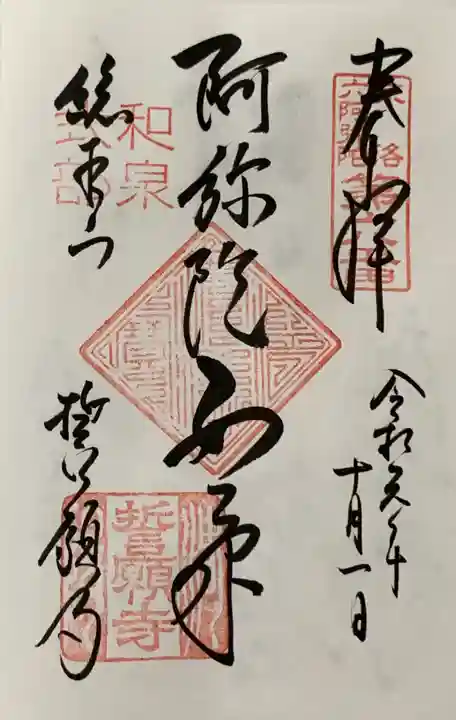 奉拝
令和元年
十月一日
阿弥陀如来
総本山
誓願寺
和泉
式部
誓願寺